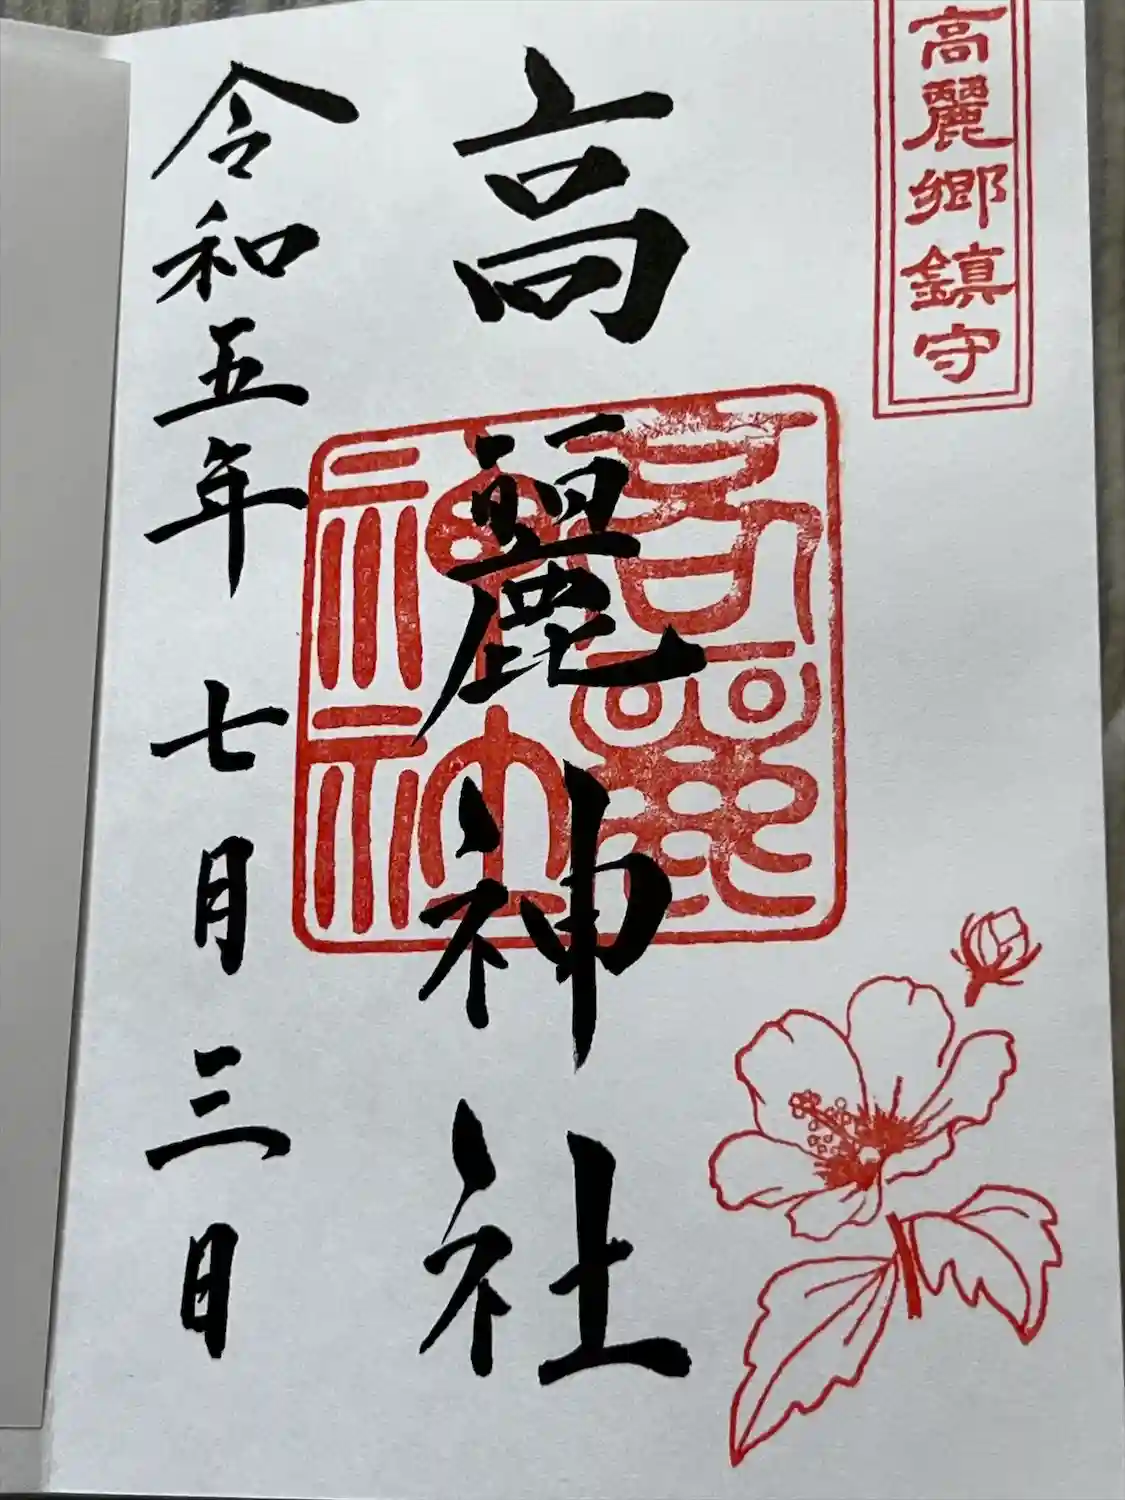 高麗郷鎮守
高麗神社
高麗
神社
令和五年七月三日